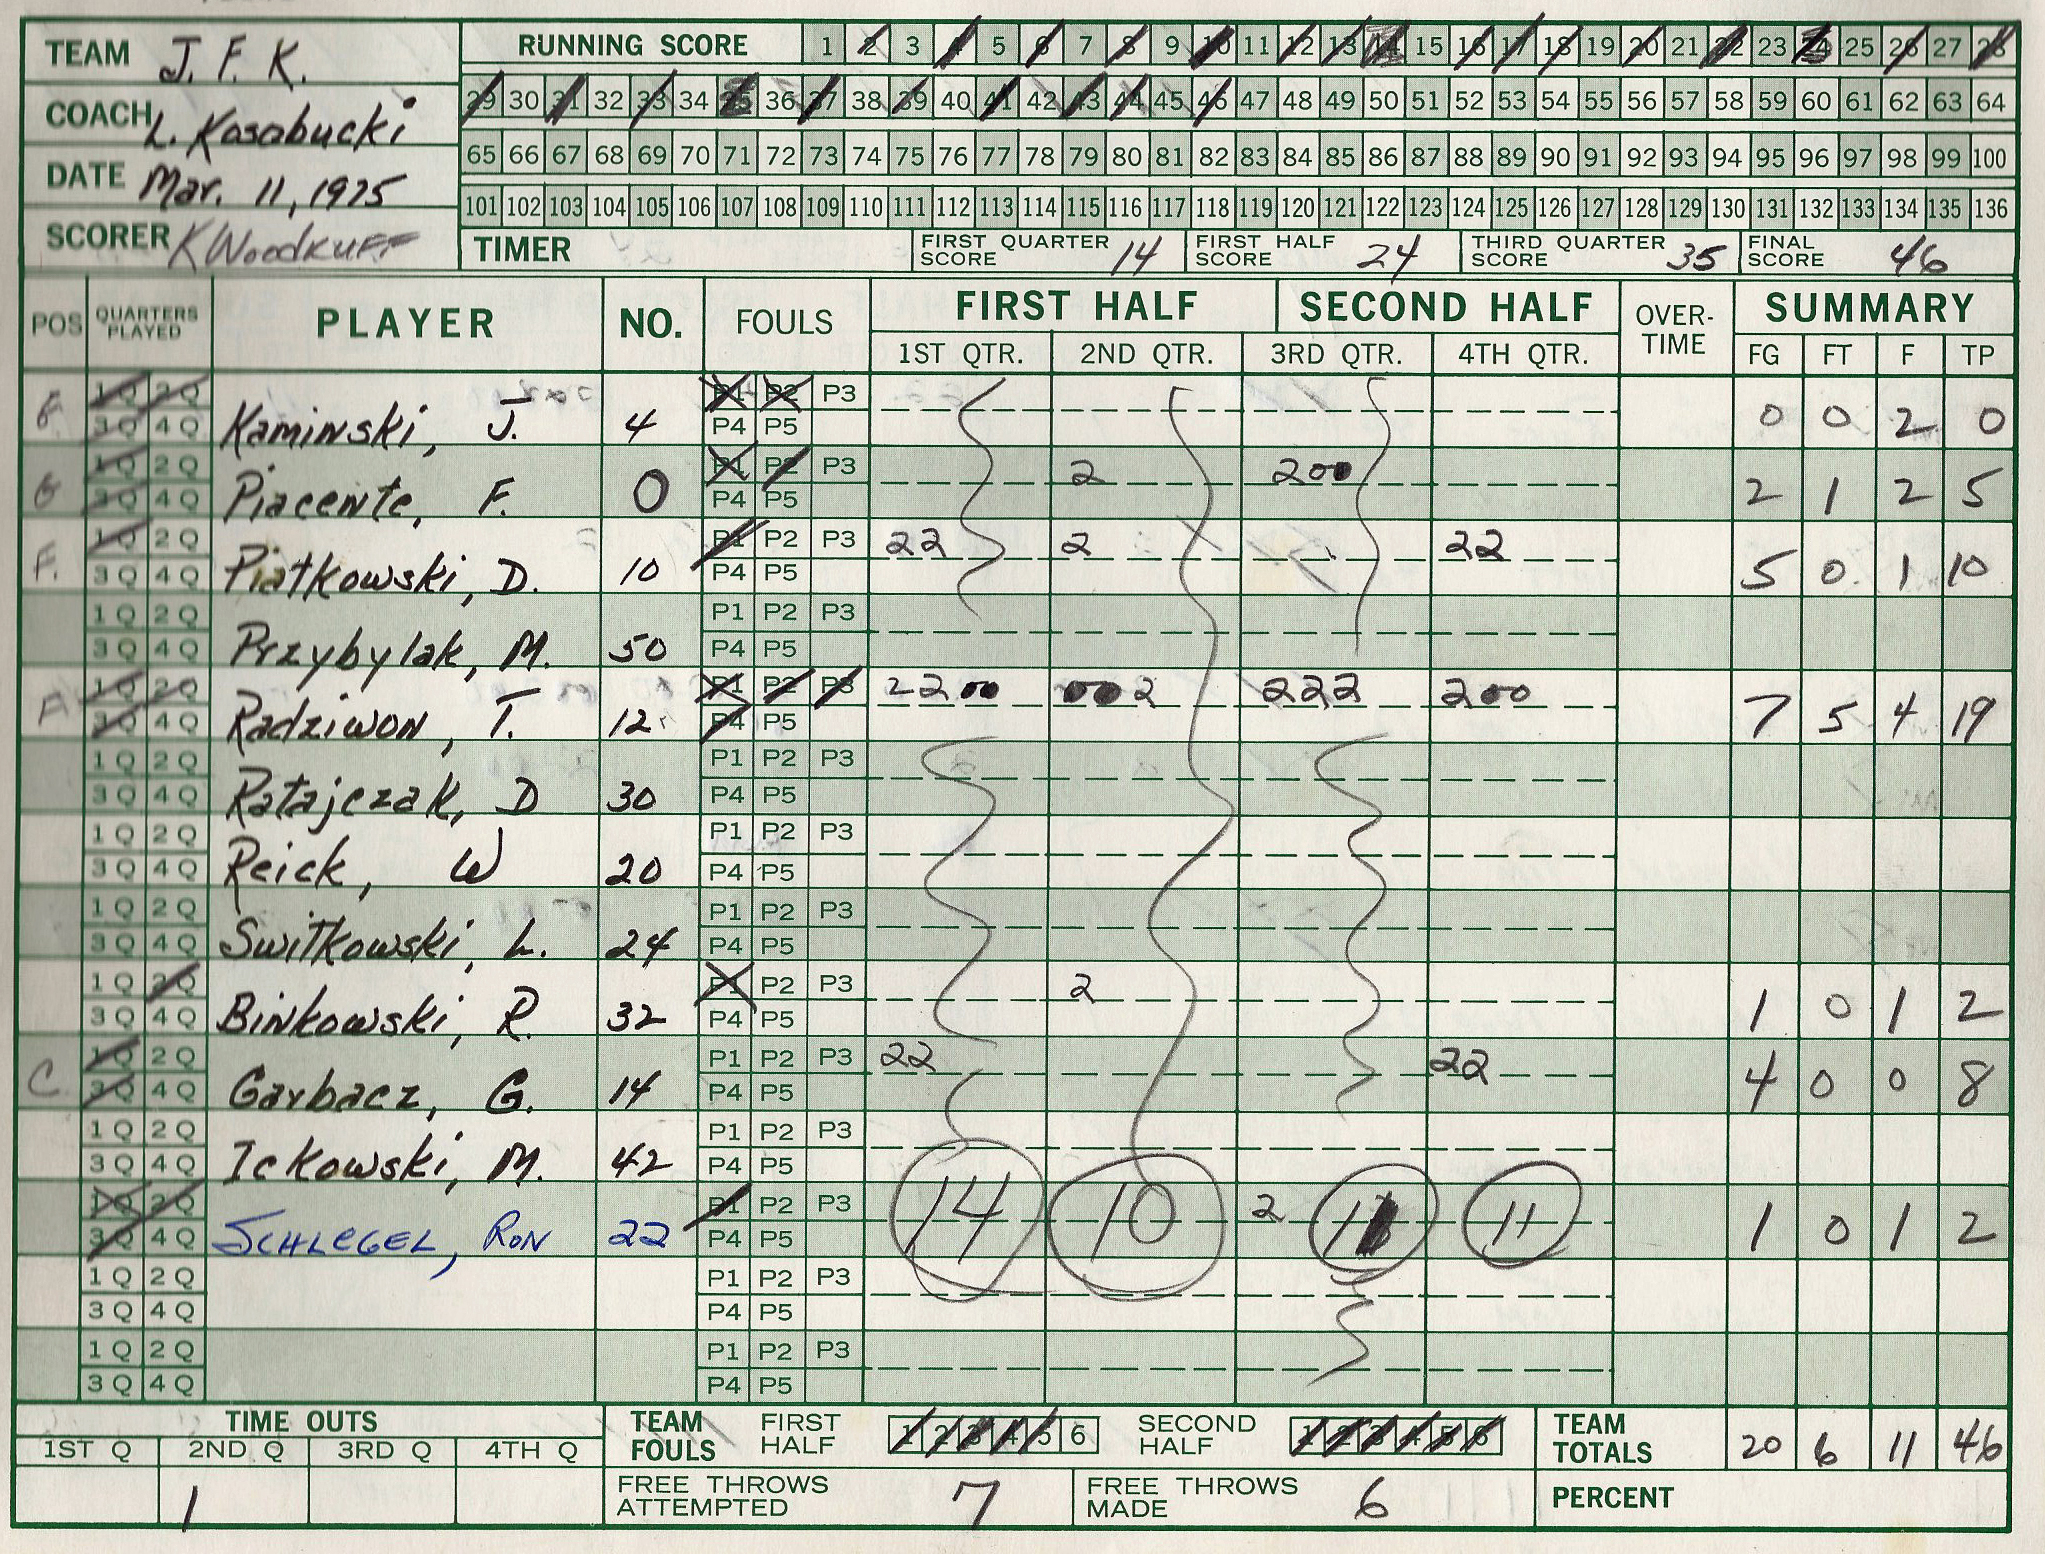 TEAM J. F. K.
RUNNING SCORE 1 2 3 4 5 6 7 8 9 10 11 12 13 14 15 16 17 18 19 20 21 22 23 24 25 26 27 28
COACH L. Kosobucki
29 30 31 32 33 34 35 36 37 38 39 40 41 42 43 44 45 46 47 48 49 50 51 52 53 54 55 56 57 58 59 60 61 62 63 64
DATE Mar. 11, 1975
65 66 67 68 69 70 71 72 73 74 75 76 77 78 79 80 81 82 83 84 85 86 87 88 89 90 91 92 93 94 95 96 97 98 99 100
101 102 103 104 105 106 107 108 109 110 111 112 113 114 115 116 117 118 119 120 121 122 123 124 125 126 127 128 129 130 131 132 133 134 135 136
SCORER K Woodruff
TIMER FIRST QUARTER SCORE 14 FIRST HALF SCORE 24 THIRD QUARTER SCORE 35 FINAL SCORE 46
POS QUARTERS PLAYED PLAYER NO. FOULS FIRST HALF SECOND HALF OVER-TIME SUMMARY
1ST QTR. 2ND QTR. 3RD QTR. 4TH QTR. FG FT F TP
1Q 2Q P1 P2 P3
3Q 4Q Kaminski, J. 4 P4 P5 0 0 2 0
G 1Q 2Q P1 P2 P3 2 200
3Q 4Q Piacente, F. 0 P4 P5 2 1 2 5
F. 1Q 2Q P1 P2 P3 22 2 22
3Q 4Q Piatkowski, D. 10 P4 P5 5 0 1 10
1Q 2Q P1 P2 P3
3Q 4Q Przybylak, M. 50 P4 P5
1Q 2Q P1 P2 P3 2200 002 222 200
3Q 4Q Radziwon, T. 12 P4 P5 7 5 4 19
1Q 2Q P1 P2 P3
3Q 4Q Ratajczak, D 30 P4 P5
1Q 2Q P1 P2 P3
3Q 4Q Reick, W 20 P4 P5
1Q 2Q P1 P2 P3
3Q 4Q Switkowski, L. 24 P4 P5
1Q 2Q P1 P2 P3 2
3Q 4Q Binkowski, R. 32 P4 P5 1 0 1 2
C. 1Q 2Q P1 P2 P3 22 22
3Q 4Q Garbacz, G. 14 P4 P5 4 0 0 8
1Q 2Q P1 P2 P3
3Q 4Q Ickowski, M. 42 P4 P5
1Q 2Q P1 P2 P3 14 10 2 11 11
3Q 4Q SCHLEGEL, RON 22 P4 P5 1 0 1 2
1Q 2Q P1 P2 P3
3Q 4Q P4 P5
1Q 2Q P1 P2 P3
3Q 4Q P4 P5
TIME OUTS TEAM FOULS FIRST HALF 1 2 3 4 5 6 SECOND HALF 1 2 3 4 5 6 TEAM TOTALS 20 6 11 46
1ST Q 2ND Q 3RD Q 4TH Q
1 FREE THROWS ATTEMPTED 7 FREE THROWS MADE 6 PERCENT